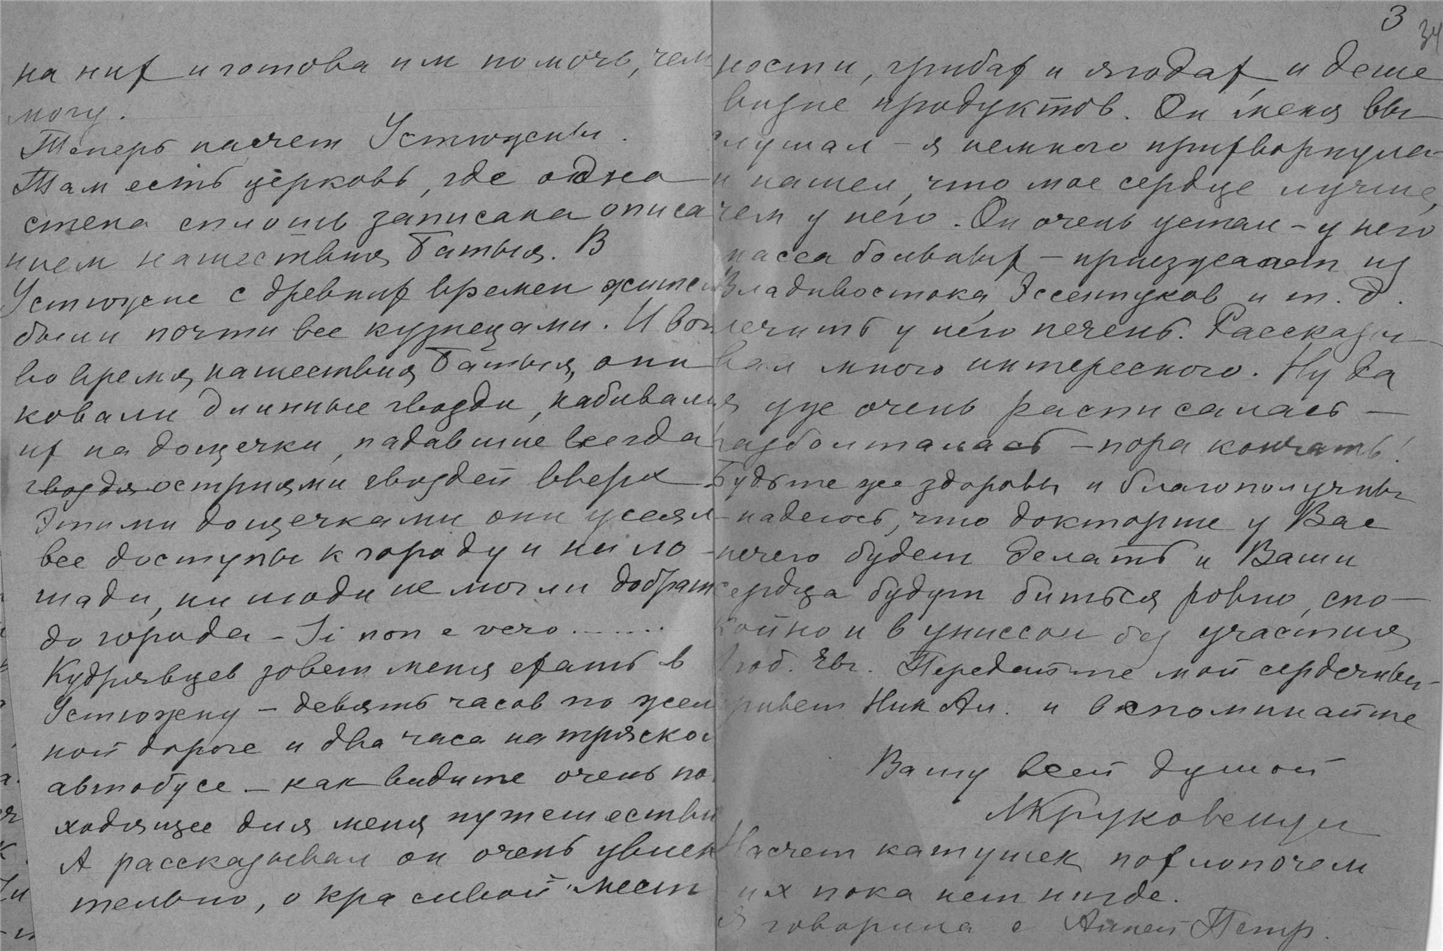 на них и готова им помочь, чем
могу.
Теперь насчет Устюжны.
Там есть церковь, где одна
стена сплошь записана описа
нием нашествия Батыя. В
Устюжне с древних времен жители
были почти все кузнецами. И вот
во время нашествия Батыя, они
ковали длинные гвозди, набивали
их на дощечки, падавшие всегда
гвоздя остриями гвоздей вверх
Этими дощечками они усеяли
все доступы к городу и ни ло-
шади, ни люди не могли добраться
до города - Si non e vero.......
Кудрявцев зовет меня ехать в
Устюжну - девять часов по желез
ной дороге и два часа на тряском
автобусе - как видите очень по
ходящее для меня путешествие
А рассказывал он очень увлека
тельно, о красивой мест
3
34
ности, грибах и ягодах и деше
визне продуктов. Он меня вы
слушал - я немного прихворнула -
и нашел, что мое сердце лучше,
чем у него. Он очень устал - у него
масса больных - приезжают из
Владивостока, Эссентуков и т. д.
лечить у него печень. Рассказы-
вал много интересного. Ну да
я уже очень расписалась -
разболталась - пора кончать!
Будьте же здоровы и благополучны
- надеюсь, что докторше у Вас
нечего будет делать и Ваши
сердца будут биться ровно, спо-
койно и в униссон без участия
Люб. Явг. Передайте мой сердечный
привет Ник Ал. и вспоминайте
Вашу всей душой
МКруковскую
Насчет катушек похлопочем
их пока нет нигде.
Я говорила с Анной Петр.